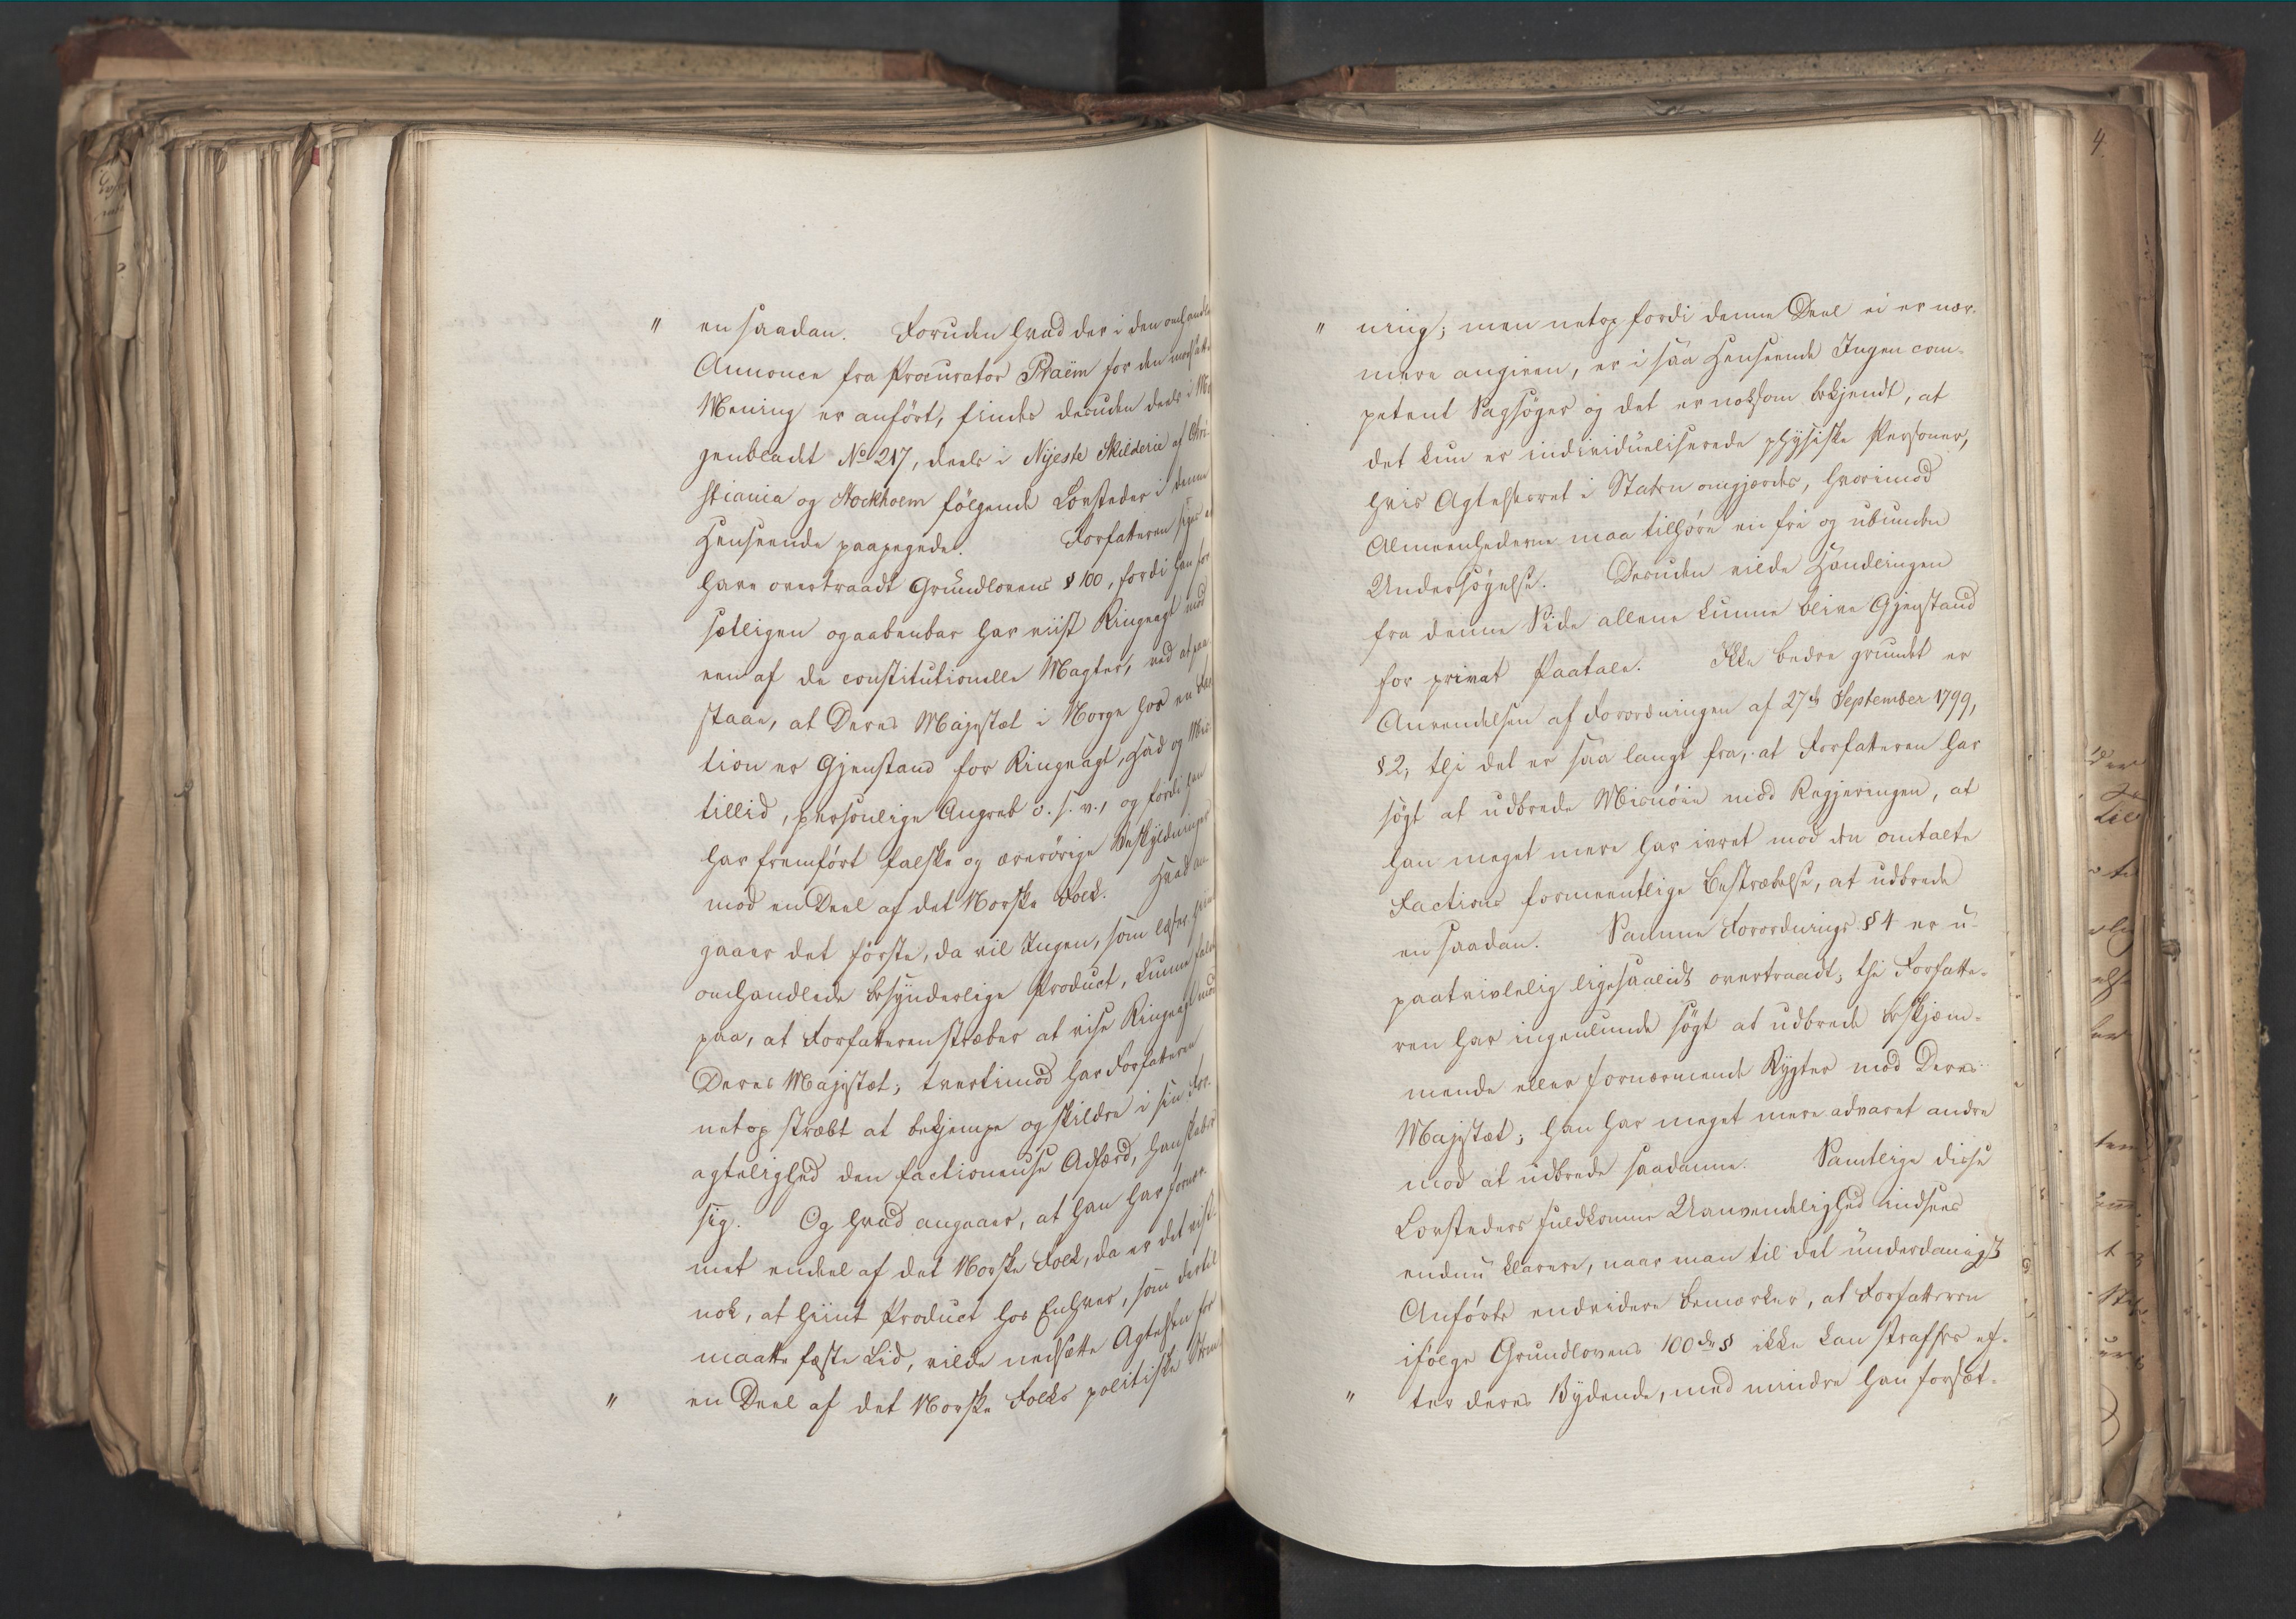 " en saadan. Foruden hvad der i den omhandle
Annonce fra Procurator Praëm for den modsatte
Mening er anført, findes desuden deels i Mo
genbladet No 217, deels i Nyeste Skilderie af Chri-
stiania og Stockholm følgende Lovsteder i denne
Henseende paapegede. Forfatteren siges at
have overtraadt Grundlovens § 100, fordi han for
sætligen og aabenbar har viist Ringeagt mod
een af de constitutionelle Magter, ved at paa
staae, at Deres Majestæt i Norge hos en Fac
tion er Gjenstand for Ringeagt, Had og Mis
tillid, personlige Angreb o. s. v., og fordi han
har fremført falske og ærerørige Beskyldninger
mod en Deel af det Norske Folk. Hvad an
gaaer det første, da vil Ingen, som læser hiint
omhandlede besynderlige Product, kunne falde
paa, at Forfatteren stræber at vise Ringeagt mod
Deres Majestæt; tvertimod har Forfatteren
netop stræbt at bekjempe og skildre i sin For-
agtelighed den factioneuse Adfærd, han skaber
sig. Og hvad angaaer, at han har fornær-
met endeel af det Norske Folk, da er det vist
nok, at hiint Product hos Enhver, som dertil
maatte fæste Lid, vilde nedsætte Agtelsen for
" en Deel af det Norske Folks politiske
" ning; men netop fordi denne Deel ei er nær-
mere angiven, er i saa Henseende Ingen com-
petent Sagsøger og det er noksom bekjendt, at
det kun er individualiserede physiske Personer,
hvis Agtelse i Staten omgjærdes, hvorimod
Almeenhederne maa tilhøre en fri og ubunden
Undersøgelse. Desuden vilde Handlingen
fra denne Side allene kunne blive Gjenstand
for privat Paatale. Ikke bedre grundet er
Anvendelsen af Forordningen af 27de September 1799,
§ 2; thi det er saa langt fra, at Forfatteren har
søgt at udbrede Misnøie mod Regjeringen, at
han meget mere har ivret mod den omtalte
Factions formeentlige Bestræbelse, at udbrede
en saadan. Samme Forordnings § 4 er u-
paatvivlelig ligesaalidt overtraadt; thi Forfatte-
ren har ingenlunde søgt at udbrede beskjæm-
mende eller fornærmende Rygter mod Deres
Majestæt; han har meget mere advaret andre
mod at udbrede saadanne. Samtlige disse
Lovsteders fuldkomne Uanvendelighed indsees
endnu klarere, naar man til det underdanigst
Anførte endvidere bemærker, at Forfatteren
ifølge Grundlovens 100de § ikke kan straffes ef-
" ter deres Bydende, med mindre han forsæt-
4.